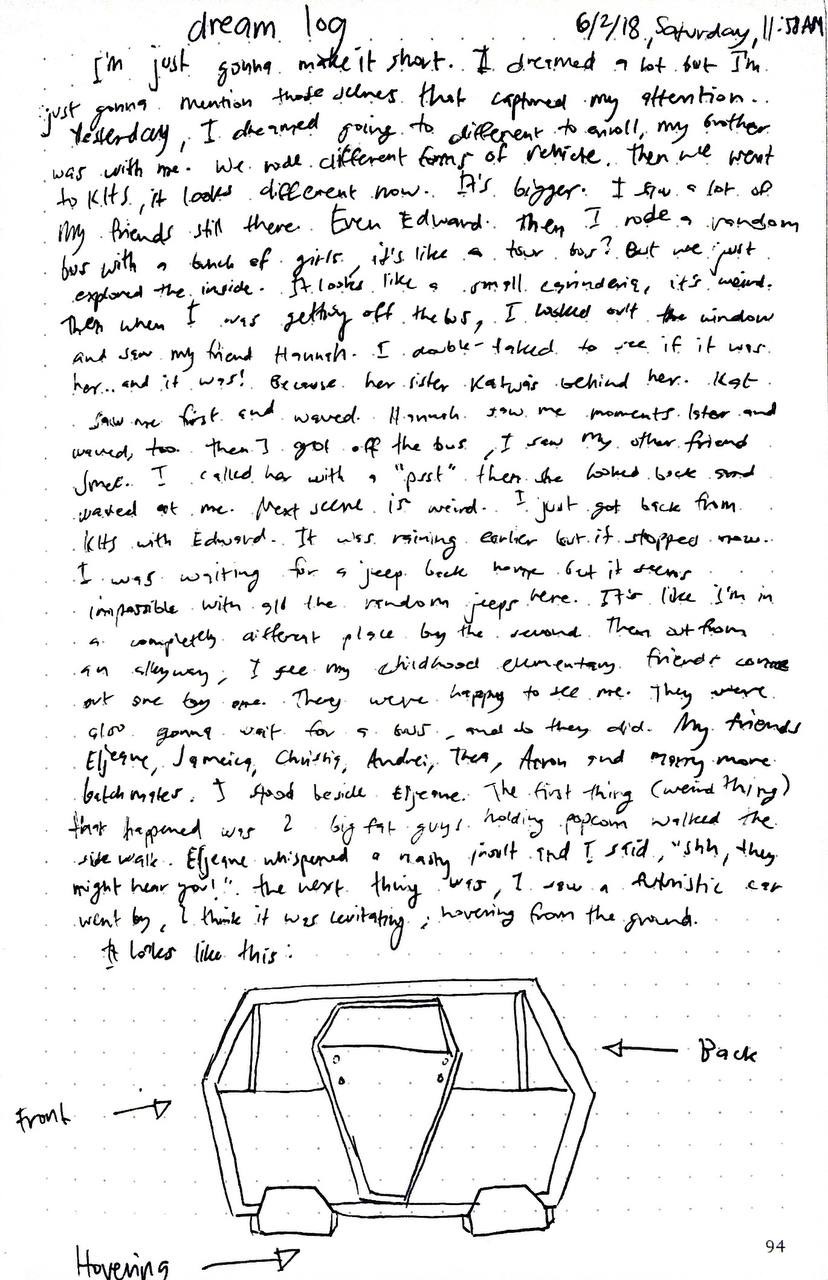 dream log
6/2/18, Saturday, 11:58AM
I'm just gonna make it short. I dreamed a lot but I'm
just gonna mention those scenes that captured my attention..
Yesterday, I dreamed going to different to enroll, my brother
was with me. We rode different forms of vehicle. Then we went
to KHS, it looks different now. It's bigger. I saw a lot of
my friends still there. Even Edward. Then I rode a random
bus with a bunch of girls, it's like a tour bus? But we just
explored the inside. It looks like a small carinderia, it's weird.
Then when I was getting off the bus, I looked out the window
and saw my friend Hannah. I double-taked to see if it was
her.. and it was! Because her sister Kat was behind her. Kat
saw me first and waved. Hannah saw me moments later and
waved, too. Then I got off the bus, I saw my other friend
I called her with a "psst" then she looked back and
waved at me. Next scene is weird. I just got back from
KHS with Edward. It was raining earlier but it stopped now.
I was waiting for a jeep back home but it seems
impossible with all the random jeeps here. It's like I'm in
a completely different place by the second. Then out from
an alleyway, I see my childhood elementary friends come
out one by one. They were happy to see me. They were
also gonna wait for a bus, and so they did. My friends
Eljeane, Jameica, Christia, Andrei, Thea, Aaron and many more
batchmates. I stood beside Eljeane. The first thing (weird thing)
that happened was 2 big fat guys holding popcorn walked the
side walk. Eljeane whispered a nasty insult and I said, "shh, they
might hear you!". The next thing was, I saw a futuristic car
went by, I think it was levitating; hovering from the ground.
It looks like this:
Back
Front
Hovering
94